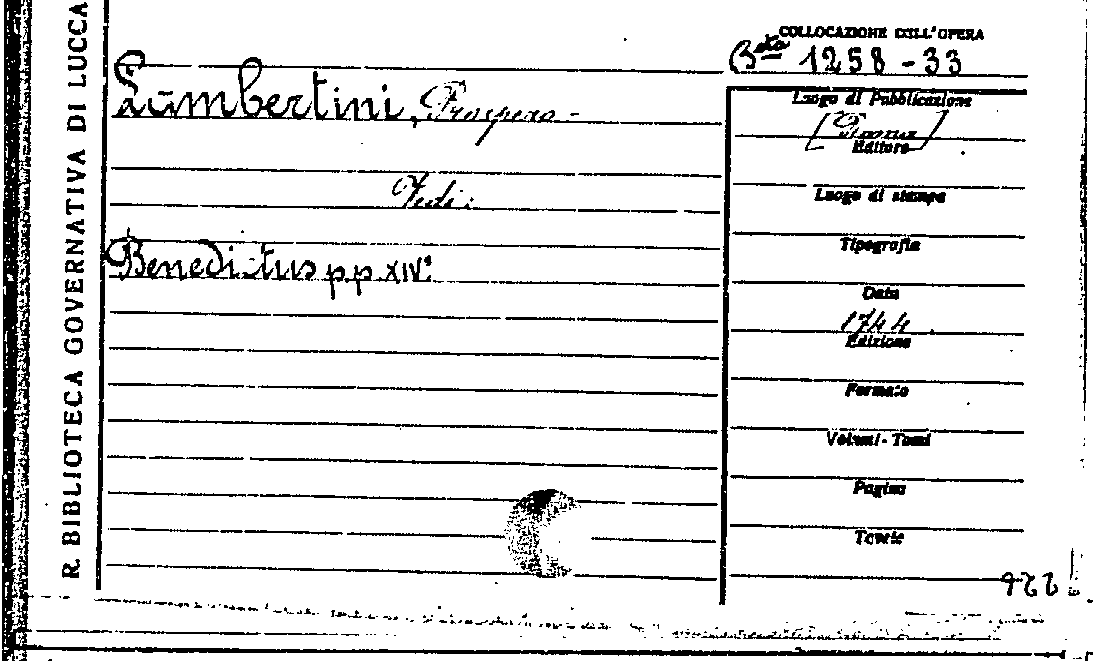 R. BIBLIOTECA GOVERNATIVA DI LUCCA
COLLOCAZIONE DELL'OPERA
Bta 1258-33
Lambertini, Prospero -
Vedi:
Benedictus p.p. XIV°
Luogo di Pubblicazione
Editore
Luogo di stampa
Tipografia
Data
1744
Edizione
Formato
Volumi - Tomi
Pagine
Tavole